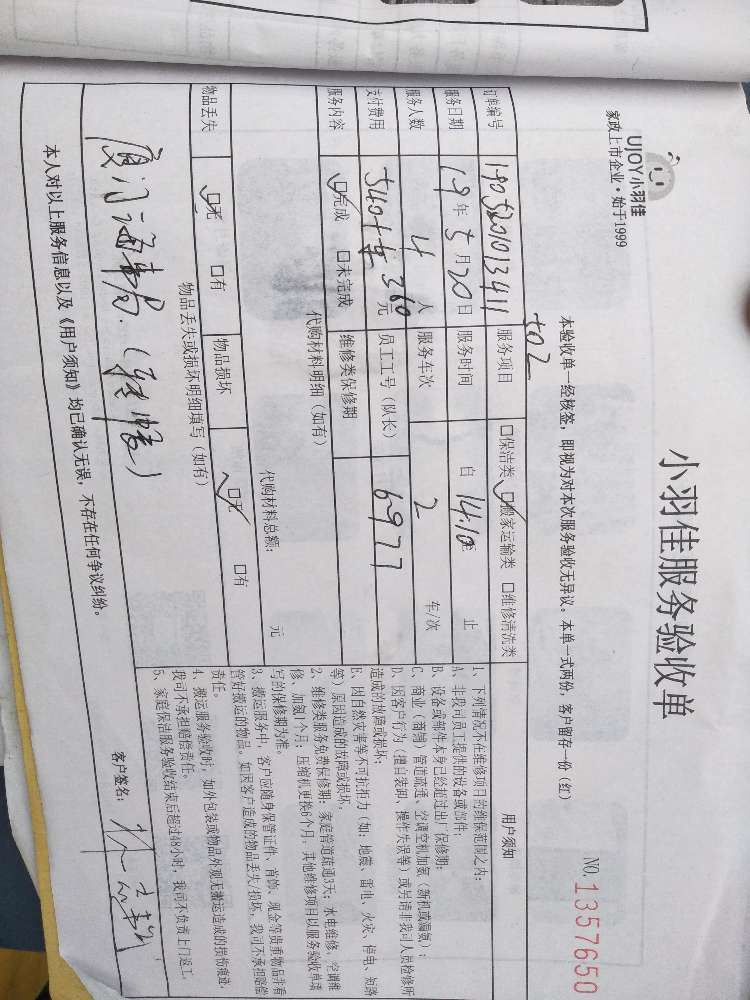 UJOY小羽佳
家政上市企业·始于1999
小羽佳服务验收单
NO.1357650
本验收单一经核签，即视为对本次服务验收无异议。本单一式两份，客户留存一份（红）
502
订单编号 190520101341 服务项目 □保洁类 ☑搬家运输类 □维修清洗类
服务日期 19年5月20日 服务时间 自14:10至 止
服务人数 4人 服务车次 2 车/次
支付费用 540+车360元 员工工号（队长） 6977
服务内容 ☑完成 □未完成 维修类保修期
代购材料明细（如有）
代购材料总额： 元
物品丢失 ☑无 □有 物品损坏 ☑无 □有
物品丢失或损坏明细填写（如有）
厦门海事局
本人对以上服务信息以及《用户须知》均已确认无误，不存在任何争议纠纷。
客户签名：
用户须知
1、下列情况不在维修项目的维保范围之内：
A、非我司员工提供的设备或部件；
B、设备或部件本身已经超过出厂保修期；
C、商业（商铺）管道疏通、空调空机加氨（新机或漏氨）；
D、因客户行为（擅自装卸、操作失误等）或另请非我司人员检修所
造成的故障或损坏；
E、因自然灾害等不可抗拒力（如：地震、雷电、火灾、停电、短路
等）原因造成的故障或损坏。
2、维修类服务免费保修期：家庭管道疏通3天；水电维修、空调维
修、加氨1个月；压缩机更换6个月，其他维修项目以服务验收单填
写的保修期为准。
3、搬运服务中，客户应随身保管证件、首饰、现金等贵重物品并看
管好搬运的物品。如因客户造成的物品丢失/损坏，我司不承担赔偿
责任。
4、搬运服务验收时，如外包装或物品外观无搬运造成的损伤痕迹，
我司不承担赔偿责任。
5、家庭保洁服务验收结束后超过48小时，我司不负责上门返工。